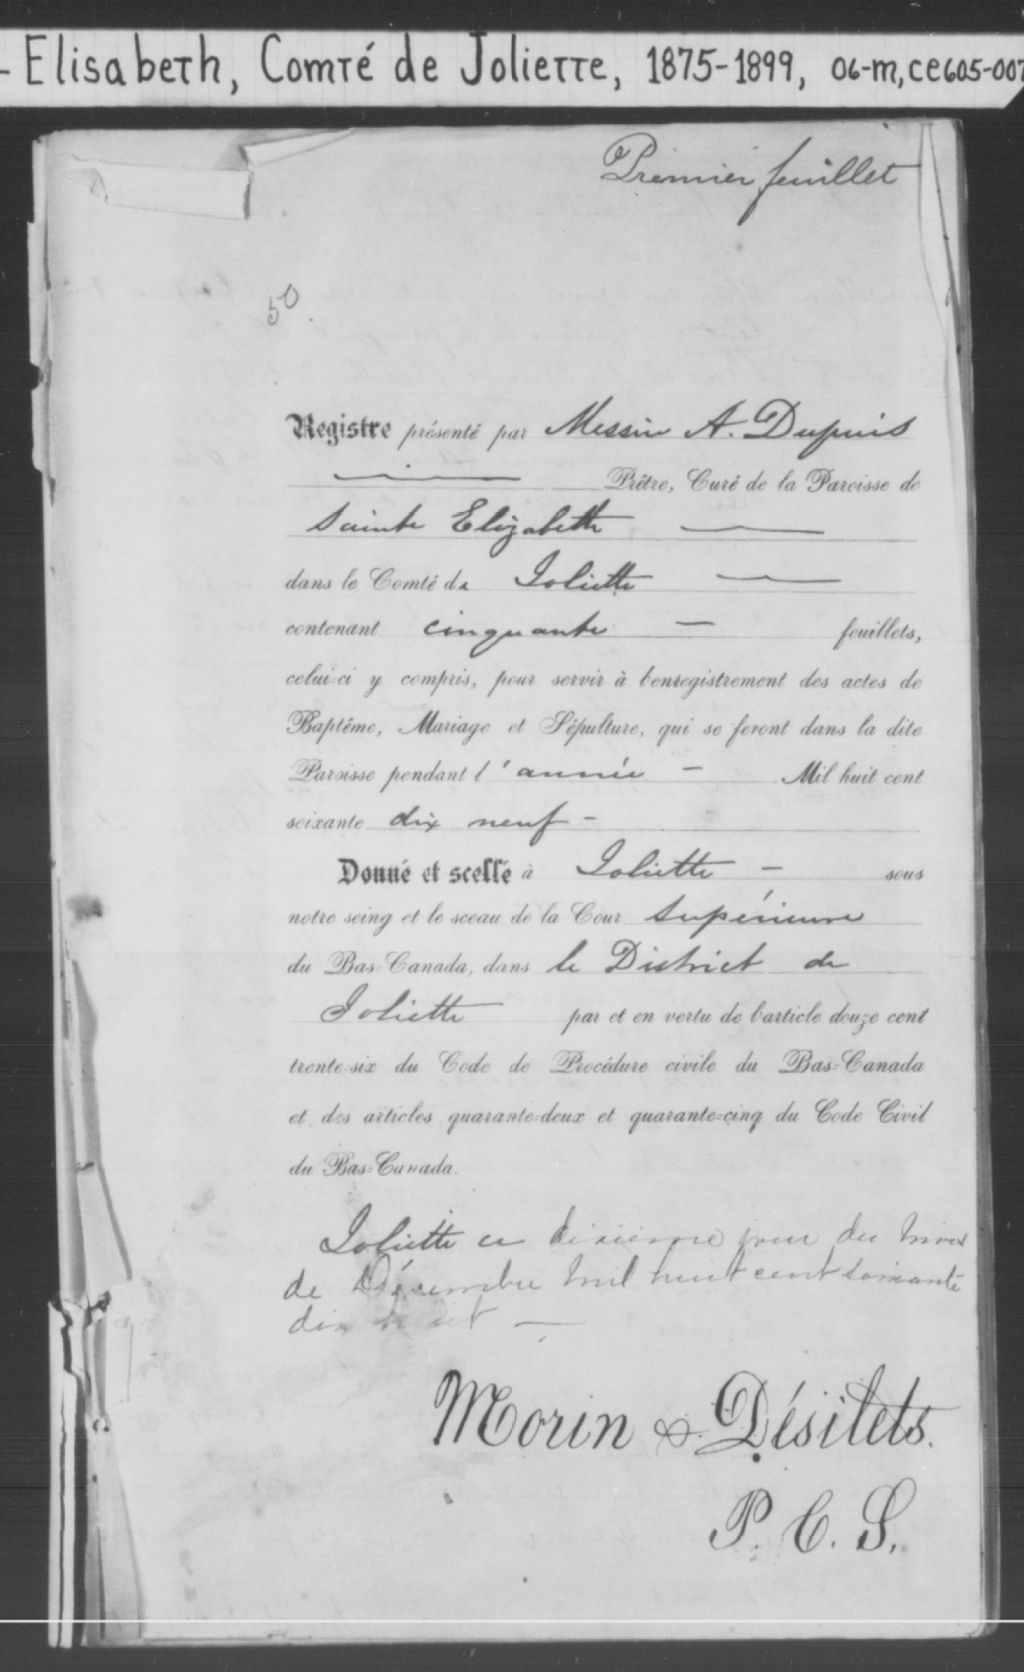 - Elisabeth, Comté de Joliette, 1875-1899, 06-m, ce605-007
Premier feuillet
50.
Registre présenté par Messire A. Dupuis
Prêtre, Curé de la Paroisse de
Sainte Elizabeth
dans le Comté de Joliette
contenant cinquante — feuillets,
celui-ci y compris, pour servir à l'enregistrement des actes de
Baptême, Mariage et Sépulture, qui se feront dans la dite
Paroisse pendant l'année — Mil huit cent
soixante dix neuf -
Donné et scellé à Joliette — sous
notre seing et le sceau de la Cour Supérieure
du Bas-Canada, dans le District de
Joliette par et en vertu de l'article douze cent
trente-six du Code de Procédure civile du Bas-Canada
et des articles quarante-deux et quarante-cinq du Code Civil
du Bas-Canada.
Joliette ce dixième jour du mois
de Décembre mil huit cent soixante
dix huit —
Morin & Désilets.
P. C. S.